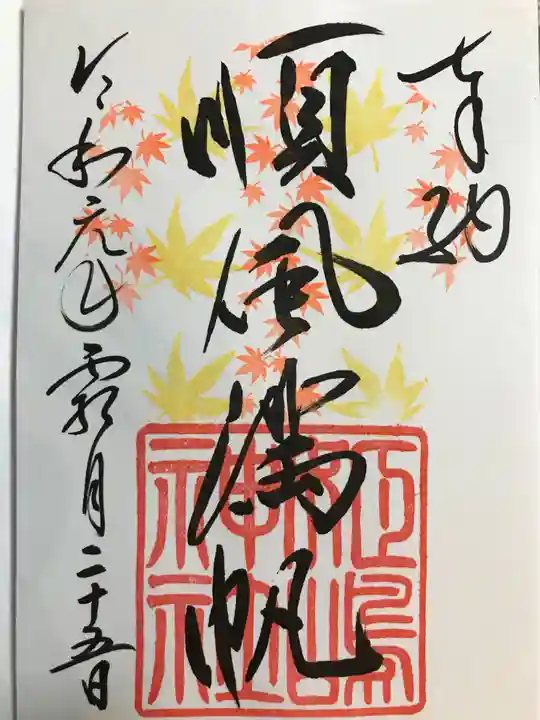 奉納
順風満帆
令和元年霜月二十五日
神社